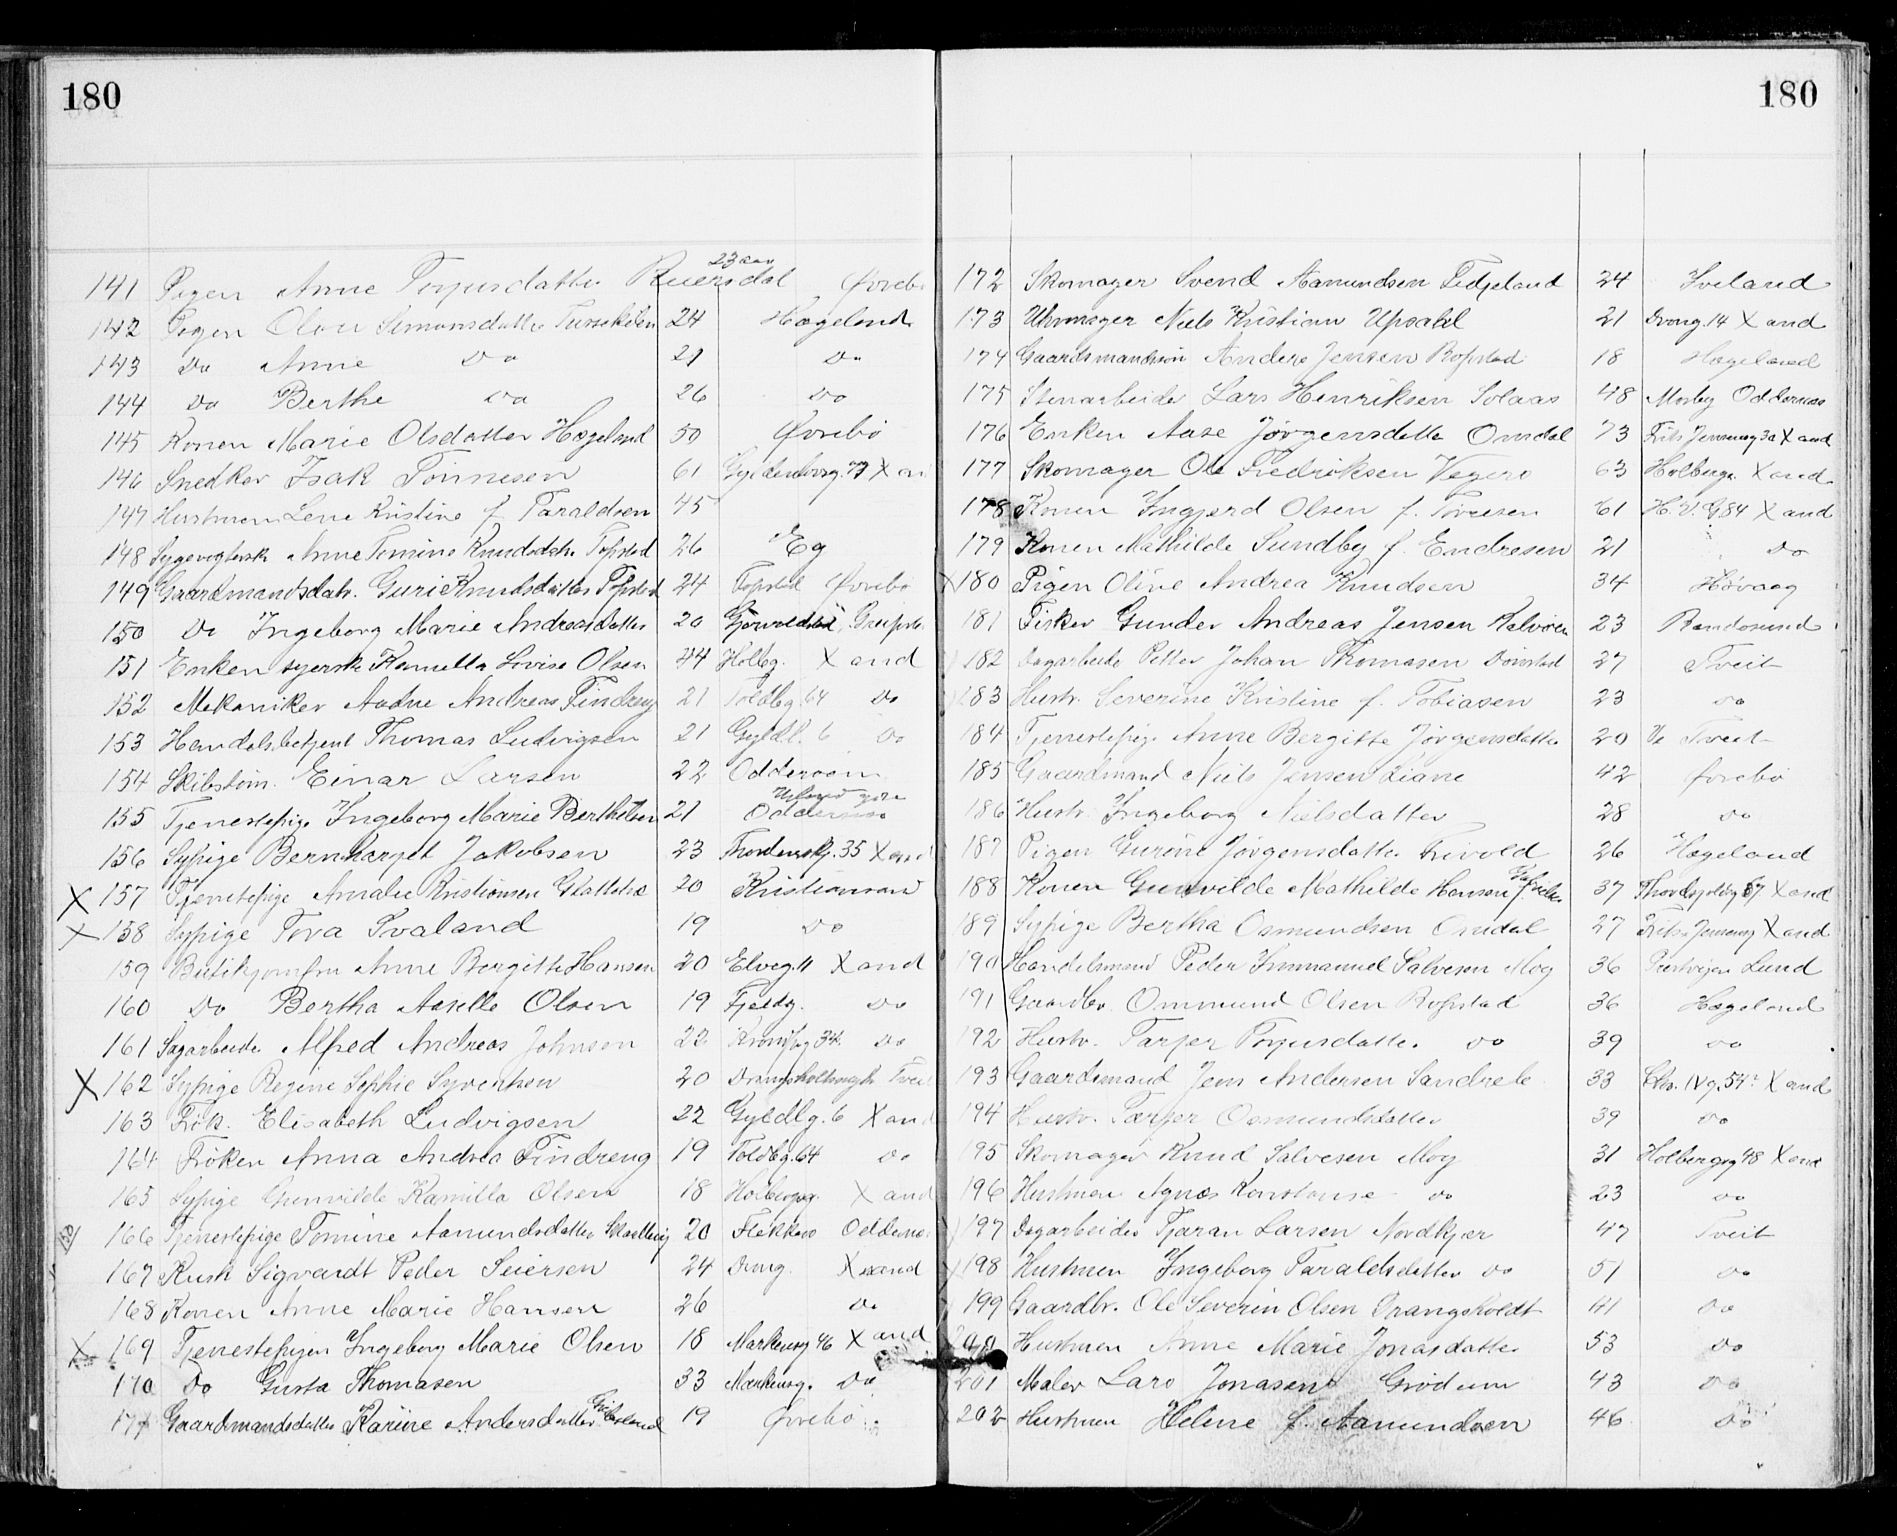 180
23 aar
141 Pigen Anne Torjusdatter Øvrebø
142 Pigen Simonsdatter 24 Hægeland
143 Do Anne Do 21 Do
144 Do Berthe Do 26 Do
145 Konen Marie Olsdatter Hægeland 50 Øvrebø
146 Snedker Isak Tønnesen 61 Gyldenløvesg. X an
147 Hustruen Lene Kristine f Taraldsen 45
148 Anne Tomine Knudsdatr. Topstad 26 Eg
149 Gaardmandsdatr. Guri Knudsdatter Topstad 24 Topstad Øvrebø
150 Do Ingeborg Marie Andreasdatter 20
151 Enken syersk Kamella Lovise Olsen 44 Holbg. X and
152 Mekaniker Andreas Findreng 21 Toldbg. 64 Do
153 Handelsbetjent Thomas Ludvigsen 21 Gyldl. 6 Do
154 Skibstøm. Einar Larsen 22 Odderøen
155 Tjenestepige Ingeborg Marie Berthelsen 21 Oddernes
156 Sypige Bernharget Jakobsen 23 Thordenskj. 35 X and
X 157 Tjenestepige Amalie Kristiansen 20 Kristiansand
X 158 Sypige Tova Svaland 19 Do
159 Butikjomfru Anne Bergitte Hansen 20 Elveg. 11 X and
160 Do Bertha Olsen 19 Fjeldg. Do
161 Sagarbeider Alfred Andreas Johnsen 22 34 Do
X 162 Sypige Regine Sophie Syvertsen 20 Tveit
163 Frøk. Elisabeth Ludvigsen 22 Gyldlg. 6 X and
164 Frøken Anna Andrea Findreng 19 Toldbg. 64 Do
165 Sypige Gunvilde Kamilla Olsen 18 Holbergsg. X and
166 Tjenestepige Tomine Aamundsdatter 20 Flekkerø Oddernes
167 Kusk Sigvardt Peder Seiersen 24 Drng. X and
168 Konen Anne Marie Hansen 26 Do
X 169 Tjenestepigen Ingeborg Marie Olsen 18 Markensg 46 X and
170 Do Gusta Thomasen 33 Markensg. Do
171 Gaardmandsdatter Karine Andersdatter 19 Øvrebø
180
172 Skomager Svend Aamundsen Fidjeland 24 Iveland
173 Uhrmager Niels Kristian Upsahl 21 Drong. 14 X and
174 Gaardsmandssøn Anders Jensen Ropstad 18 Hægeland
175 Stenarbeider Lars Henriksen Solaas 48 Mosby Oddernes
176 Enken Aase Jørgensdatter Omdal 73 X and
177 Skomager Ole Fredriksen Vegero 63 Holbergs. X and
178 Konen Ingjerd Olsen f. 61 H. V. G. 84 X and
179 Konen Mathilde Sundby f. Endresen 21 Do
X 180 Pigen Oline Andrea Knudsen 34 Høvaag
181 Fisker Gunder Andreas Jensen Kalvøen 23 Randøsund
182 Dagarbeider Petter Johan Thomasen 27 Tveit
183 Hustr. Severine Kristine f. Tobiasen 23 Do
184 Tjenestepige Anne Bergitte Jørgensdatter 20 Tveit
185 Gaardmand Niels Jensen Liane 42 Øvrebø
186 Hustr. Ingeborg Nielsdatter 28 Do
187 Pigen Gurine Jørgensdatter 26 Hægeland
188 Konen Gunvilde Mathilde Hansen 37 X and
189 Sypige Bertha Osmundsen Omdal 27 X and
190 Handelsmand Peder Immanuel Salvesen Moy 36 Lund
191 Gaardbr. Ommund Olsen Ropstad 36 Hægeland
192 Hustr. Tarjer Torjusdatter Do 39 Do
193 Gaardsmand Jens Andersen 33 54 X and
194 Hustr. Tarjer Osmundsdatter 39 Do
195 Skomager Knud Salvesen Moy 31 Holbergsg 48 X and
196 Hustruen Agnes Konstanse Do 23 Do
197 Dagarbeider Tjaran Larsen Nordkjær 47 Tveit
198 Hustruen Ingeborg Taraldsdatter Do 51 Do
199 Gaardbr. Ole Severin Olsen Drangsholdt 41 Do
200 Hustruen Anne Marie Jonasdatter 53 Do
201 Maler Lars Jonasen Grødum 43 Do
202 Hustruen Helene f. Aamundsen 46 Do